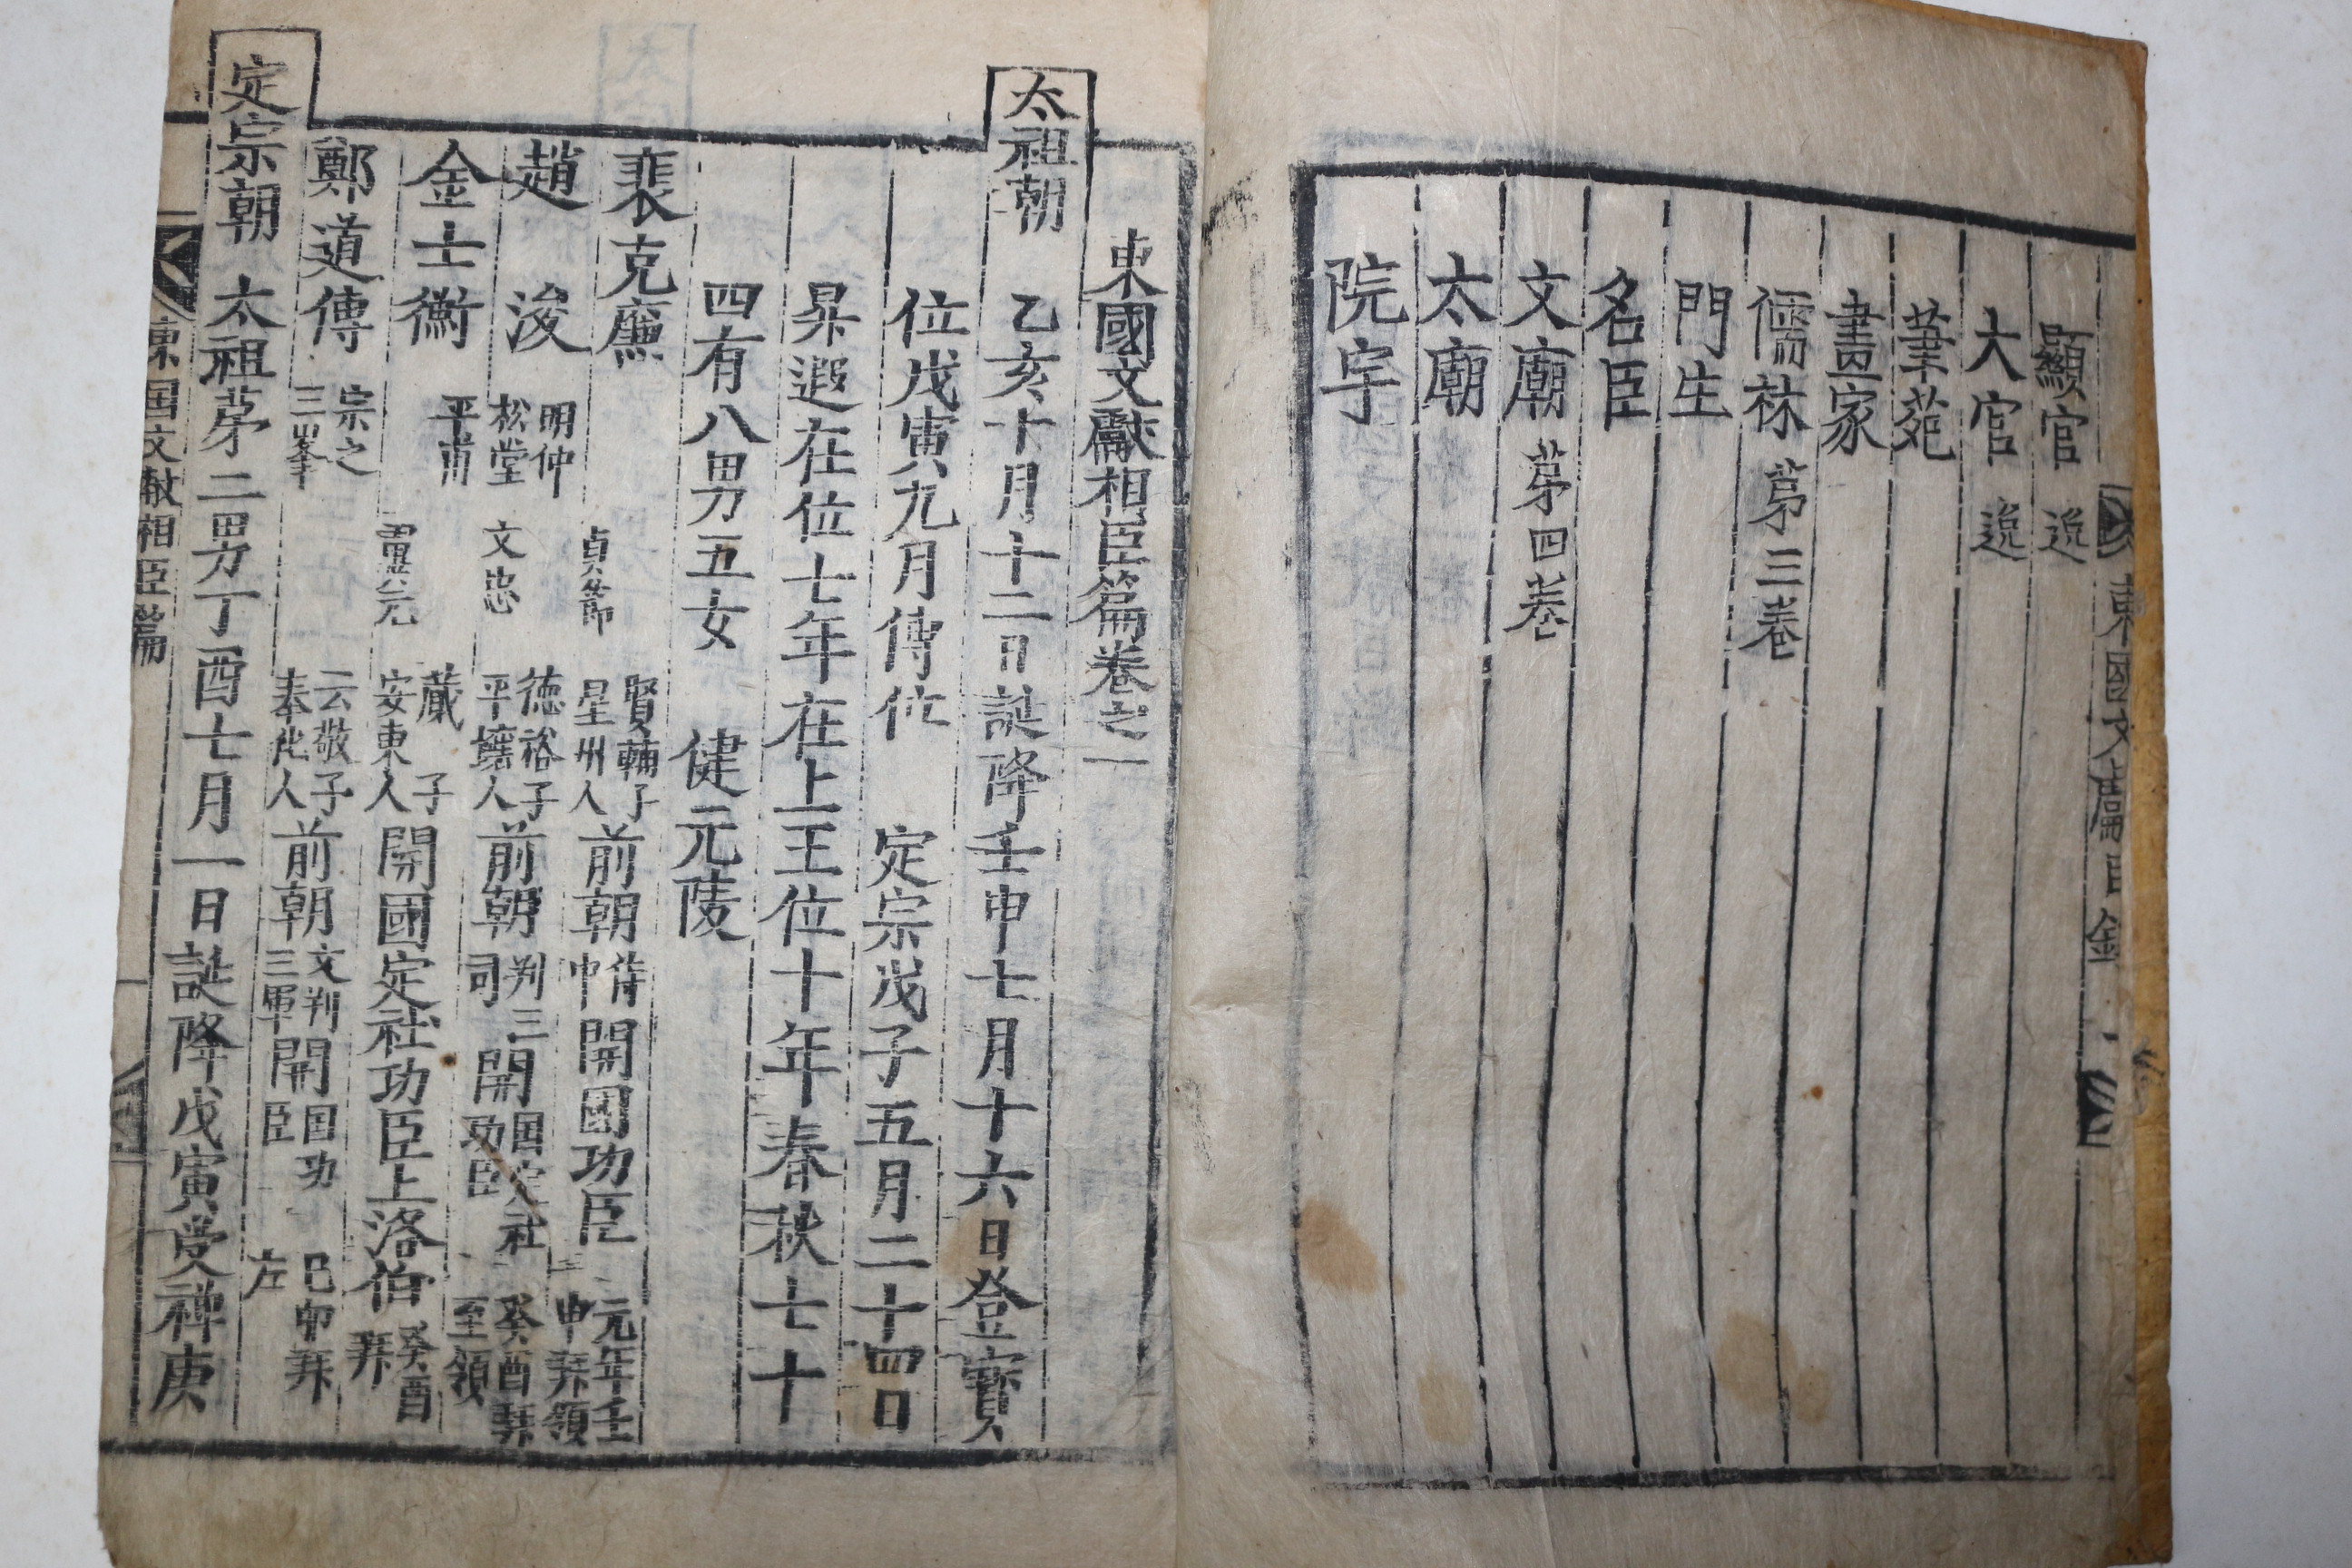 東國文獻
顯官 逸
大官 逸
筆苑
畫家
儒林 苐三卷
門生
名臣
文廟 苐四卷
太廟
院宇
東國文獻相臣篇卷之一
太祖朝 乙亥十月十二日誕降壬申七月十六日登寶
位戊寅九月傳位 定宗戊子五月二十四日
昇遐在位七年在上王位十年春秋七十
四有八男五女 健元陵
裴克廉 貞節 賢輔子 星州人 前朝侍中 開國功臣 元年壬申拜領
趙浚 明仲 松堂 文忠 德裕子 平壤人 前朝判三司 開国定社功臣 癸酉拜至領
金士衡 平甫 蕆子 安東人 開國定社功臣上洛伯 癸酉拜
鄭道傳 宗之 三峯 云敬子 奉化人 前朝文判三軍 開国功臣 己卯拜左
定宗朝 太祖苐二男丁酉七月一日誕降戊寅受禅庚
東国文献相臣篇